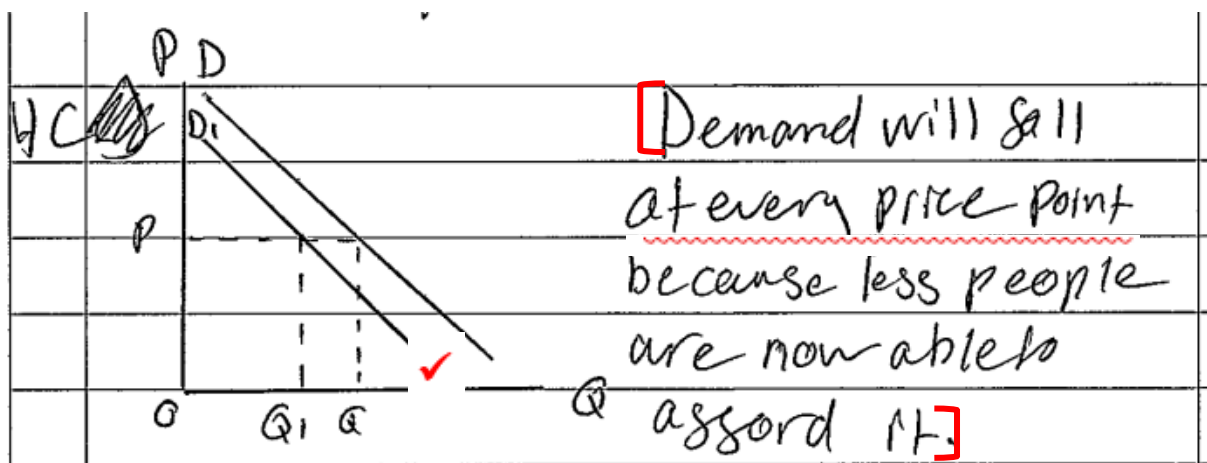 P D
4C
D1
P
O Q1 Q Q
Demand will fall
at every price point
because less people
are now able to
afford it.